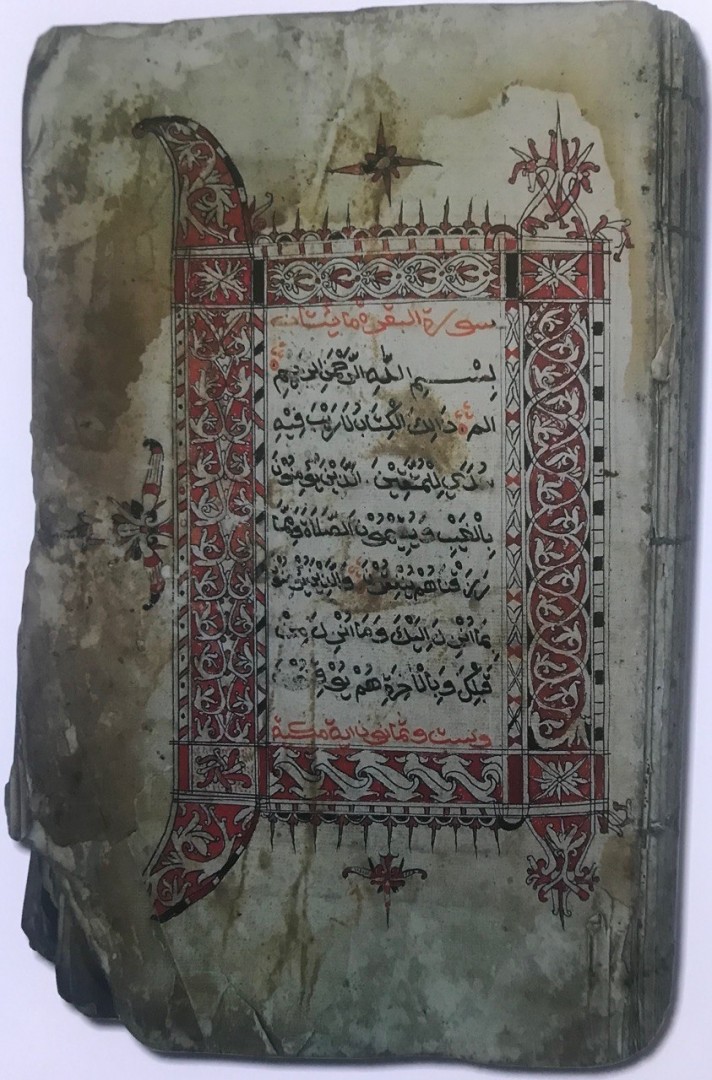 سورة البقرة مائتان
بِسْــمِ اللَّهِ الرَّحْمَنِ الرَّحِيمِ
الم ذَالِكَ الْكِتَابُ لَارَيْبَ فِيْهِ
هُدًى لِلْمُتَّقِيْنَ الَّذِيْنَ يُؤْمِنُوْنَ
بِالْغَيْبِ وَيُقِيْمُوْنَ الصَّلَاةَ وَمِمَّا
رَزَقْنَاهُمْ يُنْفِقُوْنَ وَالَّذِيْنَ يُؤْمِنُوْنَ
بِمَا اُنْزِلَ اِلَيْكَ وَمَا اُنْزِلَ مِنْ
قَبْلِكَ وَبِالْأَخِرَةِ هُمْ يُوْقِنُوْنَ
وست وثمانون اية